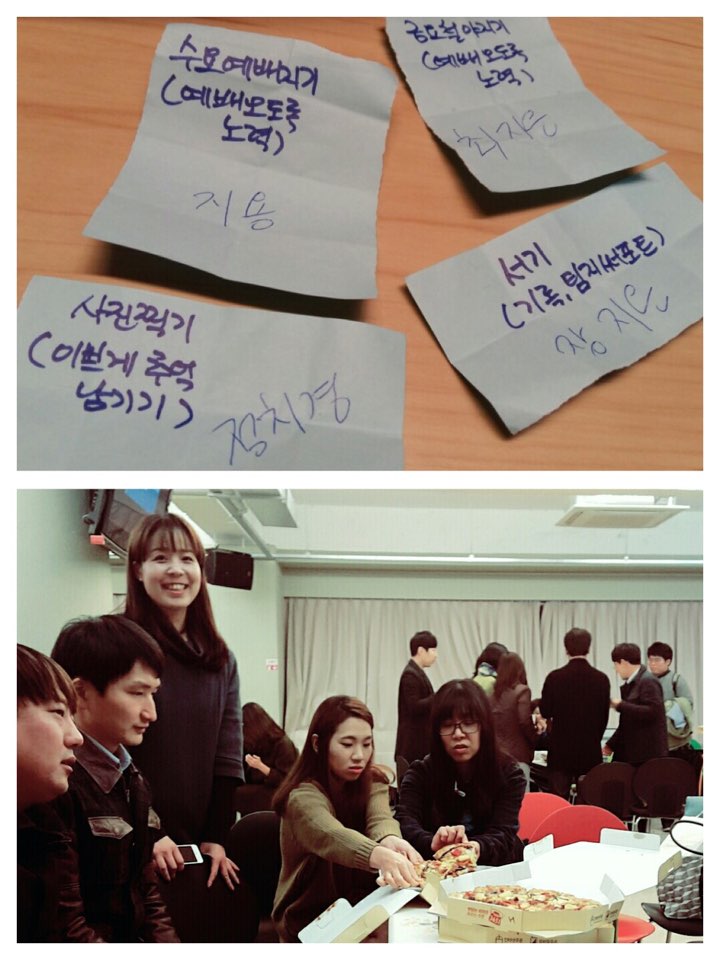 수요예배지기
(예배오도록
노력)
지용
금요철야지기
(예배오도록
노력)
최지은
사진찍기
(이쁘게 추억
남기기)
정치경
서기
(기록, 팀지써포트)
장지은